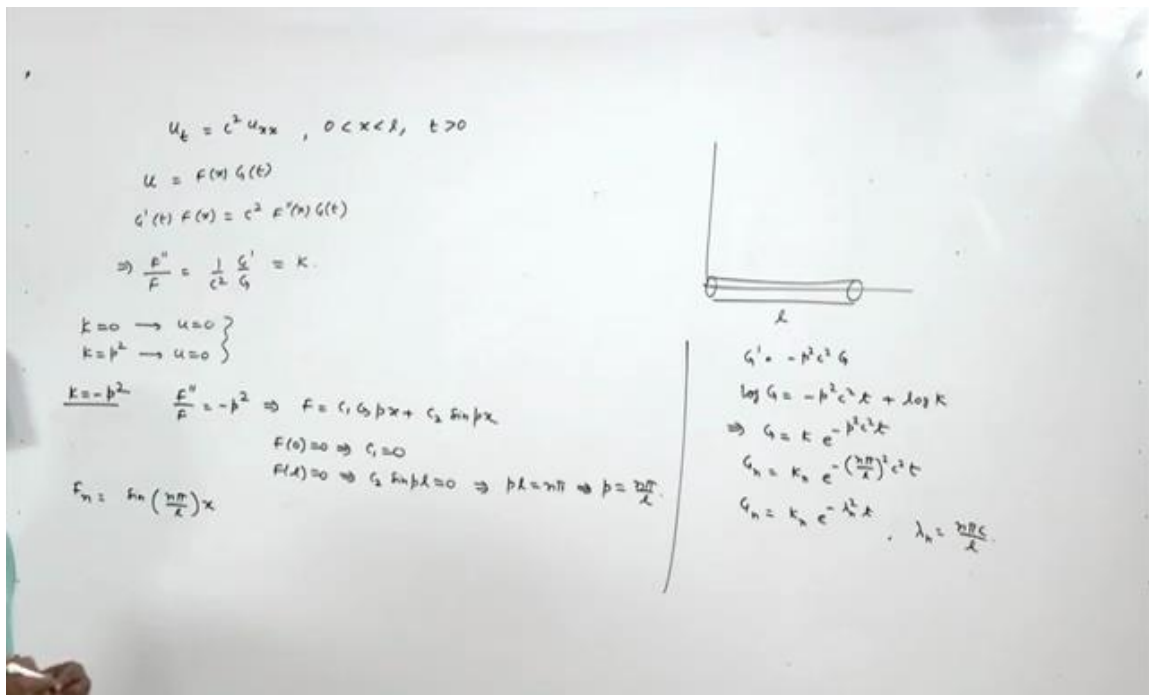 u_t = c² u_xx , 0 < x < l, t > 0
u = F(x) G(t)
G'(t) F(x) = c² F''(x) G(t)
⇒ F''/F = 1/c² G'/G = K.
k=0 → u=0 }
k=p² → u=0 }
k=-p² F''/F = -p² ⇒ F = C₁ Cos px + C₂ Sin px
F(0)=0 ⇒ C₁=0
F(l)=0 ⇒ C₂ Sin pl=0 ⇒ pl=nπ ⇒ p= nπ/l.
F_n = Sin (nπ/l) x
l
G' = -p²c² G
log G = -p²c² t + log K
⇒ G = K e^(-p²c²t)
G_n = K_n e^(-(nπ/l)² c² t)
G_n = K_n e^(-λ_n² t) , λ_n = nπc/l.